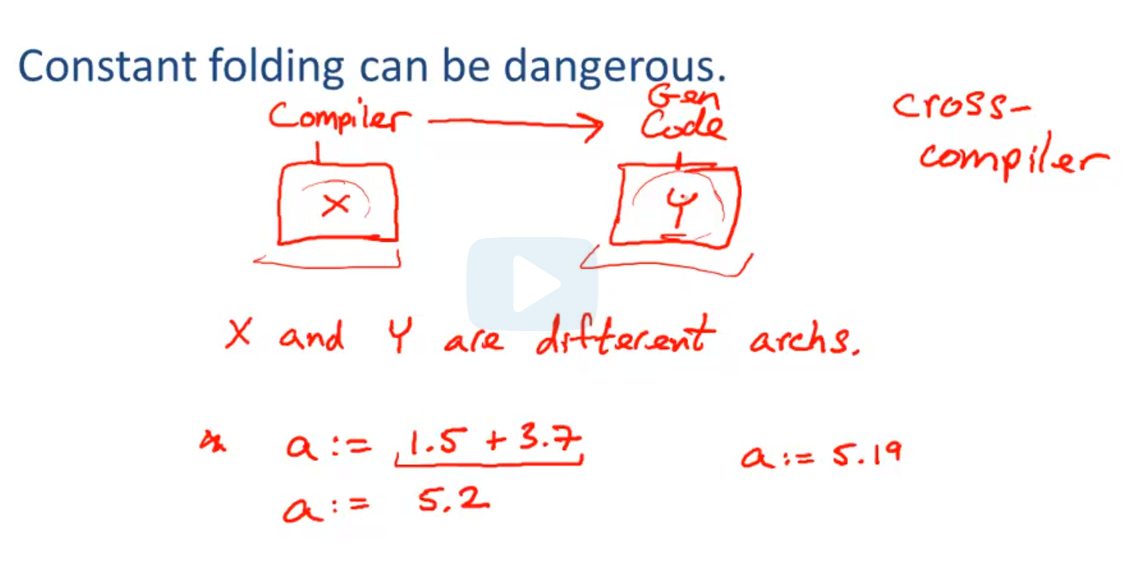 Constant folding can be dangerous.
Compiler
Gen
Code
cross-
compiler
X
Y
X and Y are different archs.
* a := 1.5 + 3.7
a := 5.19
a := 5.2